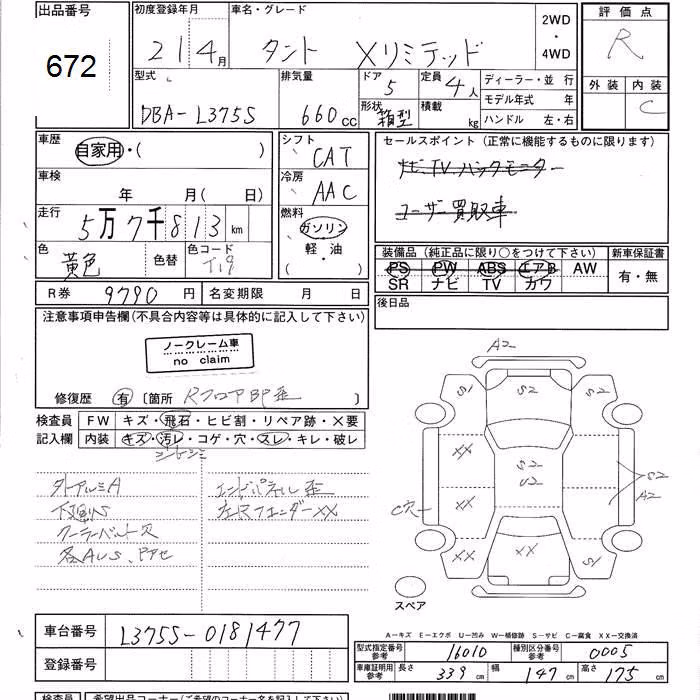 出品番号 初度登録年月 車名・グレード 2WD・4WD 評価点
672 21 4月 タント Xリミテッド R
型式 排気量 ドア 5 定員 4人 ディーラー・並行 外装 内装
DBA-L375S 660cc 形状 箱型 積載 kg モデル年式 年 C
ハンドル 左・右
車歴 自家用・( ) シフト CAT セールスポイント (正常に機能するものに限ります)
車検 年 月( 日) 冷房 AAC ナビ、TV、バックモニター
走行 5万7千813km 燃料 ガソリン ユーザー買取車
色 黄色 色替 色コード T19 軽・油 ( )
装備品 (純正品に限り○をつけて下さい) 新車保証書
PS PW ABS エアB AW 有・無
SR ナビ TV カワ
R券 9790円 名変期限 月 日 後日品
注意事項申告欄(不具合内容等は具体的に記入して下さい)
ノークレーム車
no claim
修復歴 有 〔箇所 RフロアBP歪 〕
検査員 FW キズ・飛石・ヒビ割・リペア跡・×要
記入欄 内装 キズ・汚レ・コゲ・穴・スレ・キレ・破レ
外アルミA エンドパネル歪
左Rフェンダー××
A2
S1 S2 S2
XX S2 U2 S2 A2
C穴 XX
XX XX S1
スペア
A-キズ E-エクボ U-凹み W-補修跡 S-サビ C-腐食 XX-交換済
車台番号 L375S-0181477
型式指定番号 参考 16010 種別区分番号 参考 0005
登録番号 車庫証明用 参考 長さ 339cm 幅 147cm 高さ 175cm
検査員 希望出品コーナー